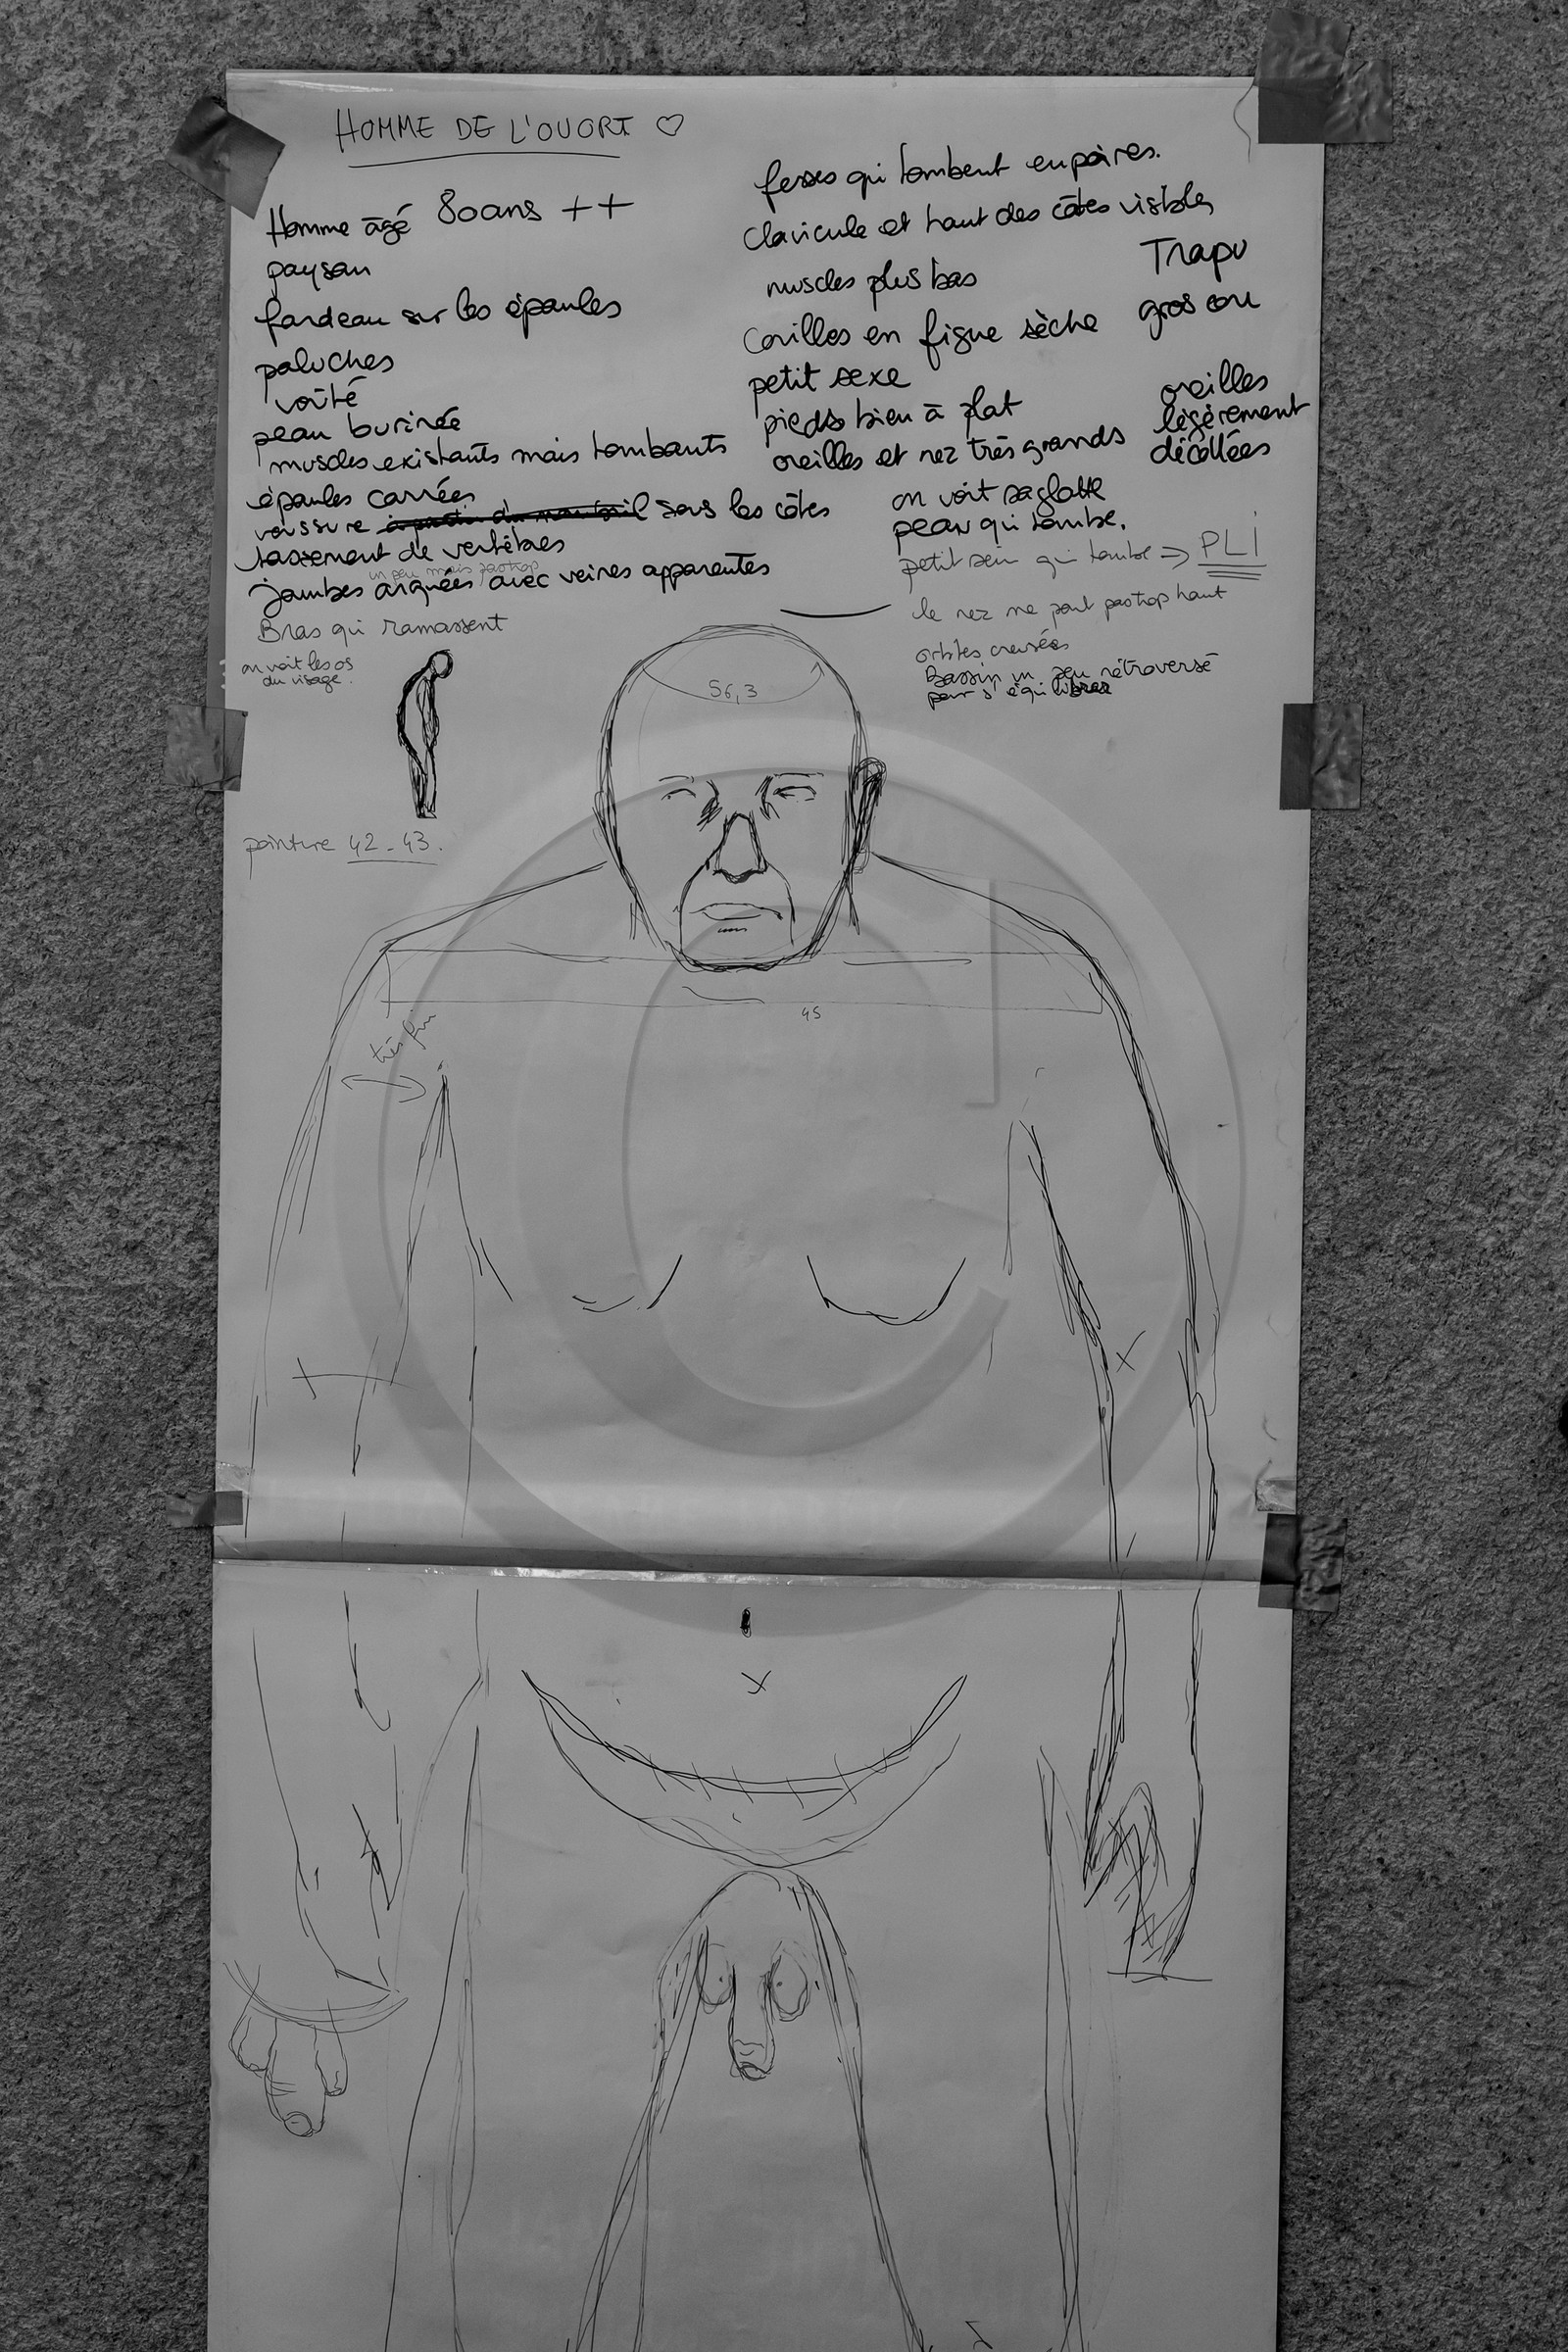 HOMME DE L'OUORT ♡
Homme âgé 80ans ++
paysan
fardeau sur les épaules
paluches
voûté
peau burinée
muscles existants mais tombants
épaules carrées
voussure sous les côtes
tassement de vertèbres
un peu mais pas trop
jambes arquées avec veines apparentes
Bras qui ramassent
on voit les os
du visage.
pointure 42-43.
fesses qui tombent en poires.
clavicule et haut des côtes visibles
muscles plus bas
Couilles en figue sèche
petit sexe
pieds bien à plat
oreilles et nez très grands
Trapu
gros cou
oreilles
légèrement
décollées
on voit sa glotte
peau qui tombe.
petit sein qui tombe => PLI
le nez ne part pas trop haut
orbites creusées
Bassin un peu rétroversé
pour s'équilibrer
56,3
45
très fin